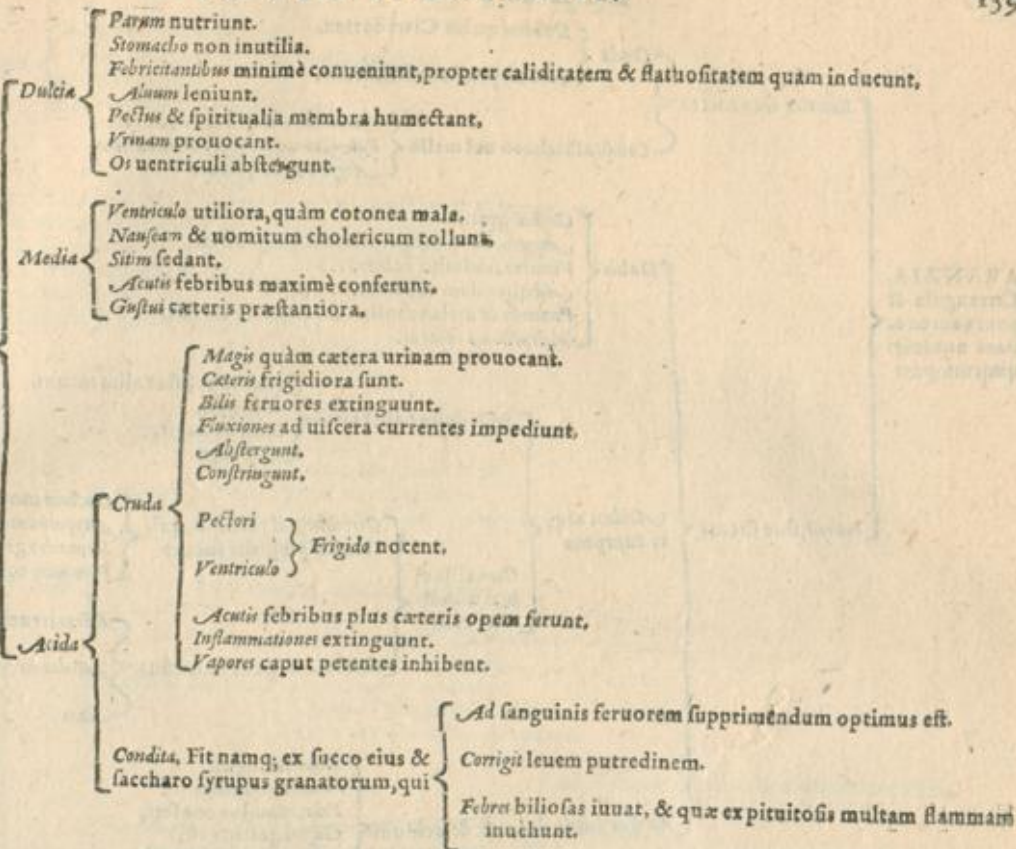 139
Parum nutriunt.
Stomacho non inutilia.
Febricitantibus minimè conueniunt, propter caliditatem & flatuoſitatem quam inducunt,
Dulcia
Aluum leniunt.
Pectus & ſpiritualia membra humectant,
Vrinam prouocant.
Os uentriculi abſtergunt.
Ventriculo utiliora, quàm cotonea mala.
Nauſeam & uomitum cholericum tollunt.
Media
Sitim ſedant.
Acutis febribus maximè conferunt.
Guſtui cæteris præſtantiora.
Magis quàm cætera urinam prouocant.
Cæteris frigidiora ſunt.
Bilis feruores extinguunt.
Fluxiones ad uiſcera currentes impediunt,
Abſtergunt.
Conſtringunt.
Cruda
Pectori
Frigido nocent.
Ventriculo
Acutis febribus plus cæteris opem ferunt,
Inflammationes extinguunt.
Acida
Vapores caput petentes inhibent.
Ad ſanguinis feruorem ſupprimendum optimus eſt.
Condita, Fit namq; ex ſucco eius &
ſaccharo ſyrupus granatorum, qui
Corrigit leuem putredinem.
Febres bilioſas iuuat, & quæ ex pituitoſis multam flammam
inuehunt.